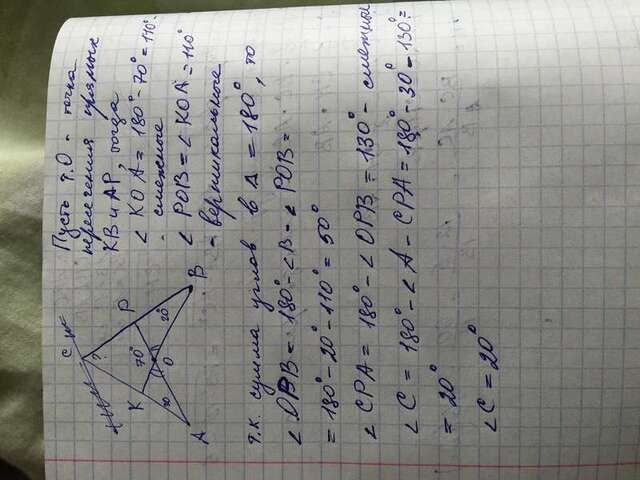 C
?
K
70°
P
30
O
20°
A
B
Пусть т.О - точка
пересечения прямых
KB и AP, тогда
∠ KOA = 180° - 70° = 110° -
- смежные
∠ POB = ∠ KOA = 110°
- вертикальные
т.к. сумма углов в Δ = 180°, то
∠ OPB = 180° - ∠B - ∠ POB =
= 180° - 20° - 110° = 50°
∠ CPA = 180° - ∠ OPB = 130° - смежные
∠ C = 180° - ∠ A - CPA = 180° - 30° - 130° =
= 20°
∠ C = 20°